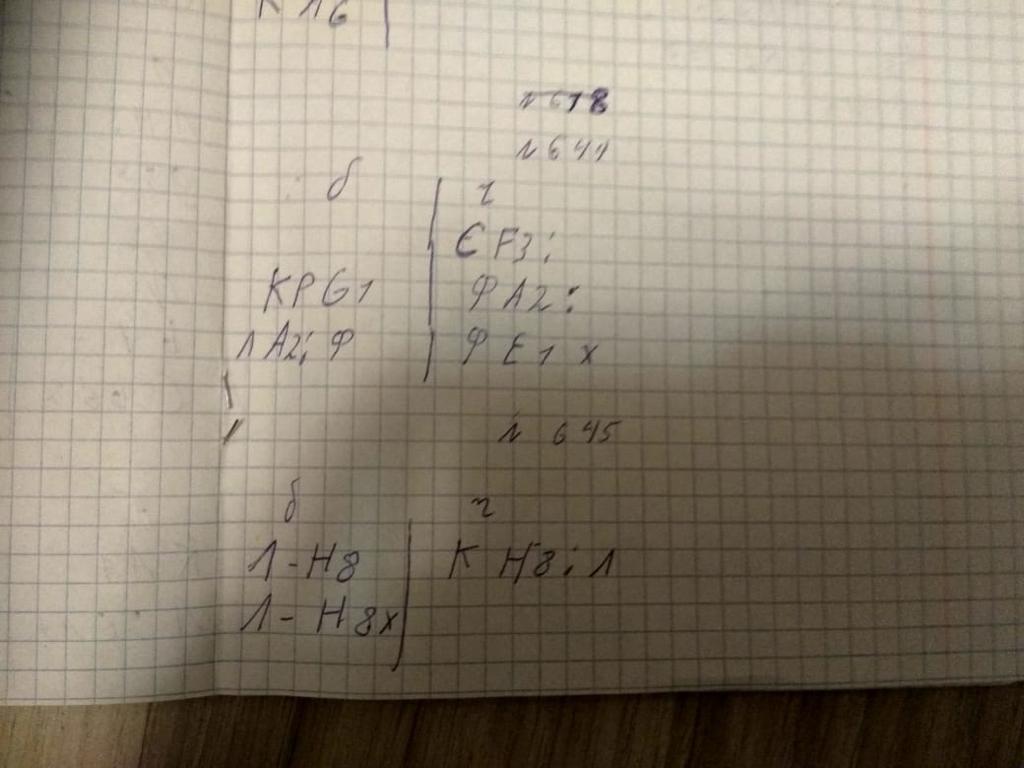 К Л6
№ 618
№ 641
б | ч
ЄF3:
КРG1 | ФА2:
ЛА2: Ф | ФЕ1 х
№ 645
б | ч
Л-Н8 | К Н8: Л
Л-Н8х